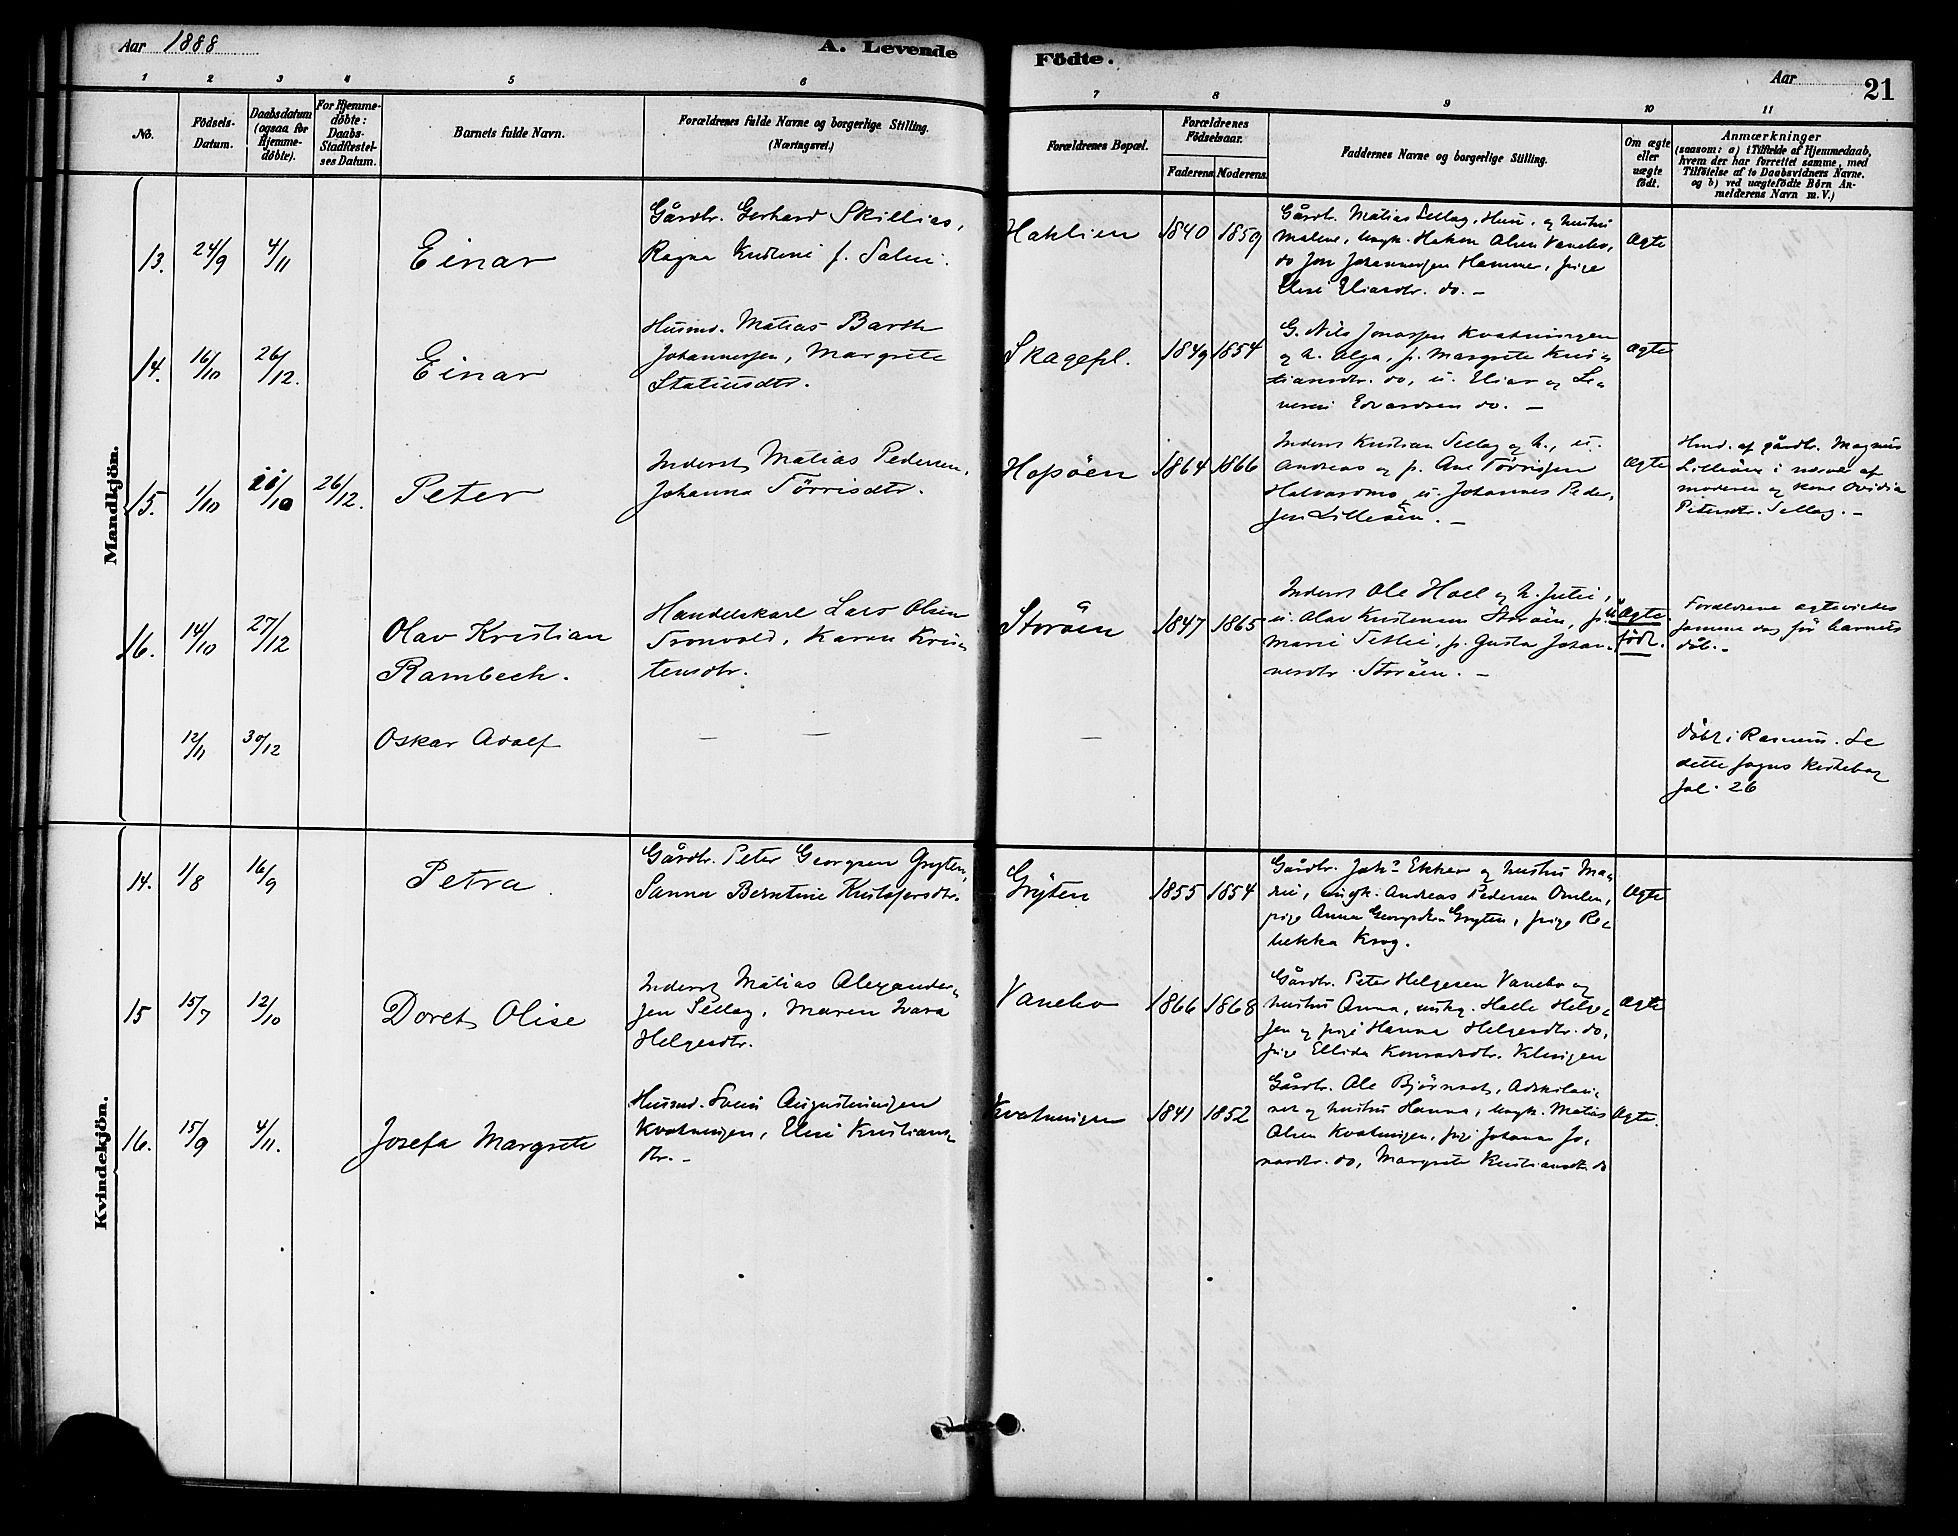 Aar 1888
A. Levende
Födte.
Aar
21
1 2 3 4 5 6 7 8 9 10 11
No.
Födsels-
Datum.
Daabsdatum
(ogsaa for
Hjemme-
döbte).
For Hjemme-
döbte:
Daabs-
Stadfæstel-
ses Datum.
Barnets fulde Navn.
Forældrenes fulde Navne og borgerlige Stilling.
(Næringsvei.)
Forældrenes Bopæl.
Forældrenes
Födselsaar.
Faderens Moderens.
Faddernes Navne og borgerlige Stilling.
Om ægte
eller
uægte
födt.
Anmærkninger
(saasom: a) i Tilfælde af Hjemmedaab,
hvem der har forrettet samme, med
Tilföielse af to Daabsvidners Navne.
og b) ved uægtefödte Börn An-
melderens Navn m. V.)
Mandkjön.
13. 24/9 4/11 Einar
Gårdbr. Gerhard Skillias,
Ragna f. Salvi.
Haklien 1840 1859
Gårdbr. Matias Sellæg, Husu. og hustru
Malene, Ungk. Hakon Olsen Vanebo,
do Jon Johannessen Hammer, pige
Eliasdtr. do. —
Ægte
14. 16/10 26/12. Einar
Husmd. Matias Barth
Johannessen, Margrete
Statiusdtr.
Skagepl. 1849 1854
G. Nils Jonassen Kvatningen
og h. Olga, p. Margrete Kris-
tiansdtr. do, u. Elias og Le-
Edvardsen do. —
Ægte
15. 1/10 21/10 26/12. Peter
Inderst Matias Pedersen,
Johanna Törrisdtr.
Hopöen 1864 1866
Inderst Kristian Sellæg og h., u.
Andreas og p. Ane Törrissen
Halvardmo, u. Johannes Peder-
sen Lilleöen. —
Ægte
Hmd. af gårdbr. Magnus
Lilleöen i nærvær af
moderen og kone Ovidia
Petersdtr. Sellæg. —
16. 14/10 27/12
Olav Kristian
Rambech.
Handelskarl Lars Olsen
Tronvold, Karen Kris-
tensdtr.
Storöen 1847 1865
Inderst Ole Hoel og h. Julie,
u. Olav Kristensen Storöen, p.
Marie Setlie, p. Gusta Johan-
nesdtr Storöen. —
u Ægte
födt.
Forældrene ægteviedes
samme dag för barnets
dåb. —
12/11 30/12 Oskar Adolf — — —
Döbt i Ranum. Se
dette sogns kirkebog
fol. 26
Kvindekjön.
14. 1/8 16/9 Petra.
Gårdbr. Peter Georgsen Gryten,
Sanna Berntine Kristofersdtr.
Gryten 1855 1854
Gårdbr. Johs Ekker og hustru Ma-
rie, ungk. Andreas Pedersen Omlen,
pige Anna Georgsdtr Gryten, pige Re-
bekka Krog.
Ægte
15 15/7 12/10 Doret Olise
Inderst Matias Alexander-
sen Sellæg, Maren Ivara
Helgesdtr.
Vanebo 1866 1868
Gårdbr. Peter Helgesen Vanebo og
hustru Anna, ungk. Halle Helge-
sen og pige Hanna Helgesdtr. do,
pige Ellida Konradsdtr. Klingen
Ægte
16. 15/9 4/11. Josefa Margrete
Husmd. Svein Augustinusen
Kvatningen, Kristians-
dtr. —
Kvatningen 1841 1852
Gårdbr. Ole Björnset,
og hustru Hanna, Ungk. Matias
Olsen Kvatningen, pige Johanna Jo-
nasdtr. do, Margrete Kristiansdtr. do
Ægte.